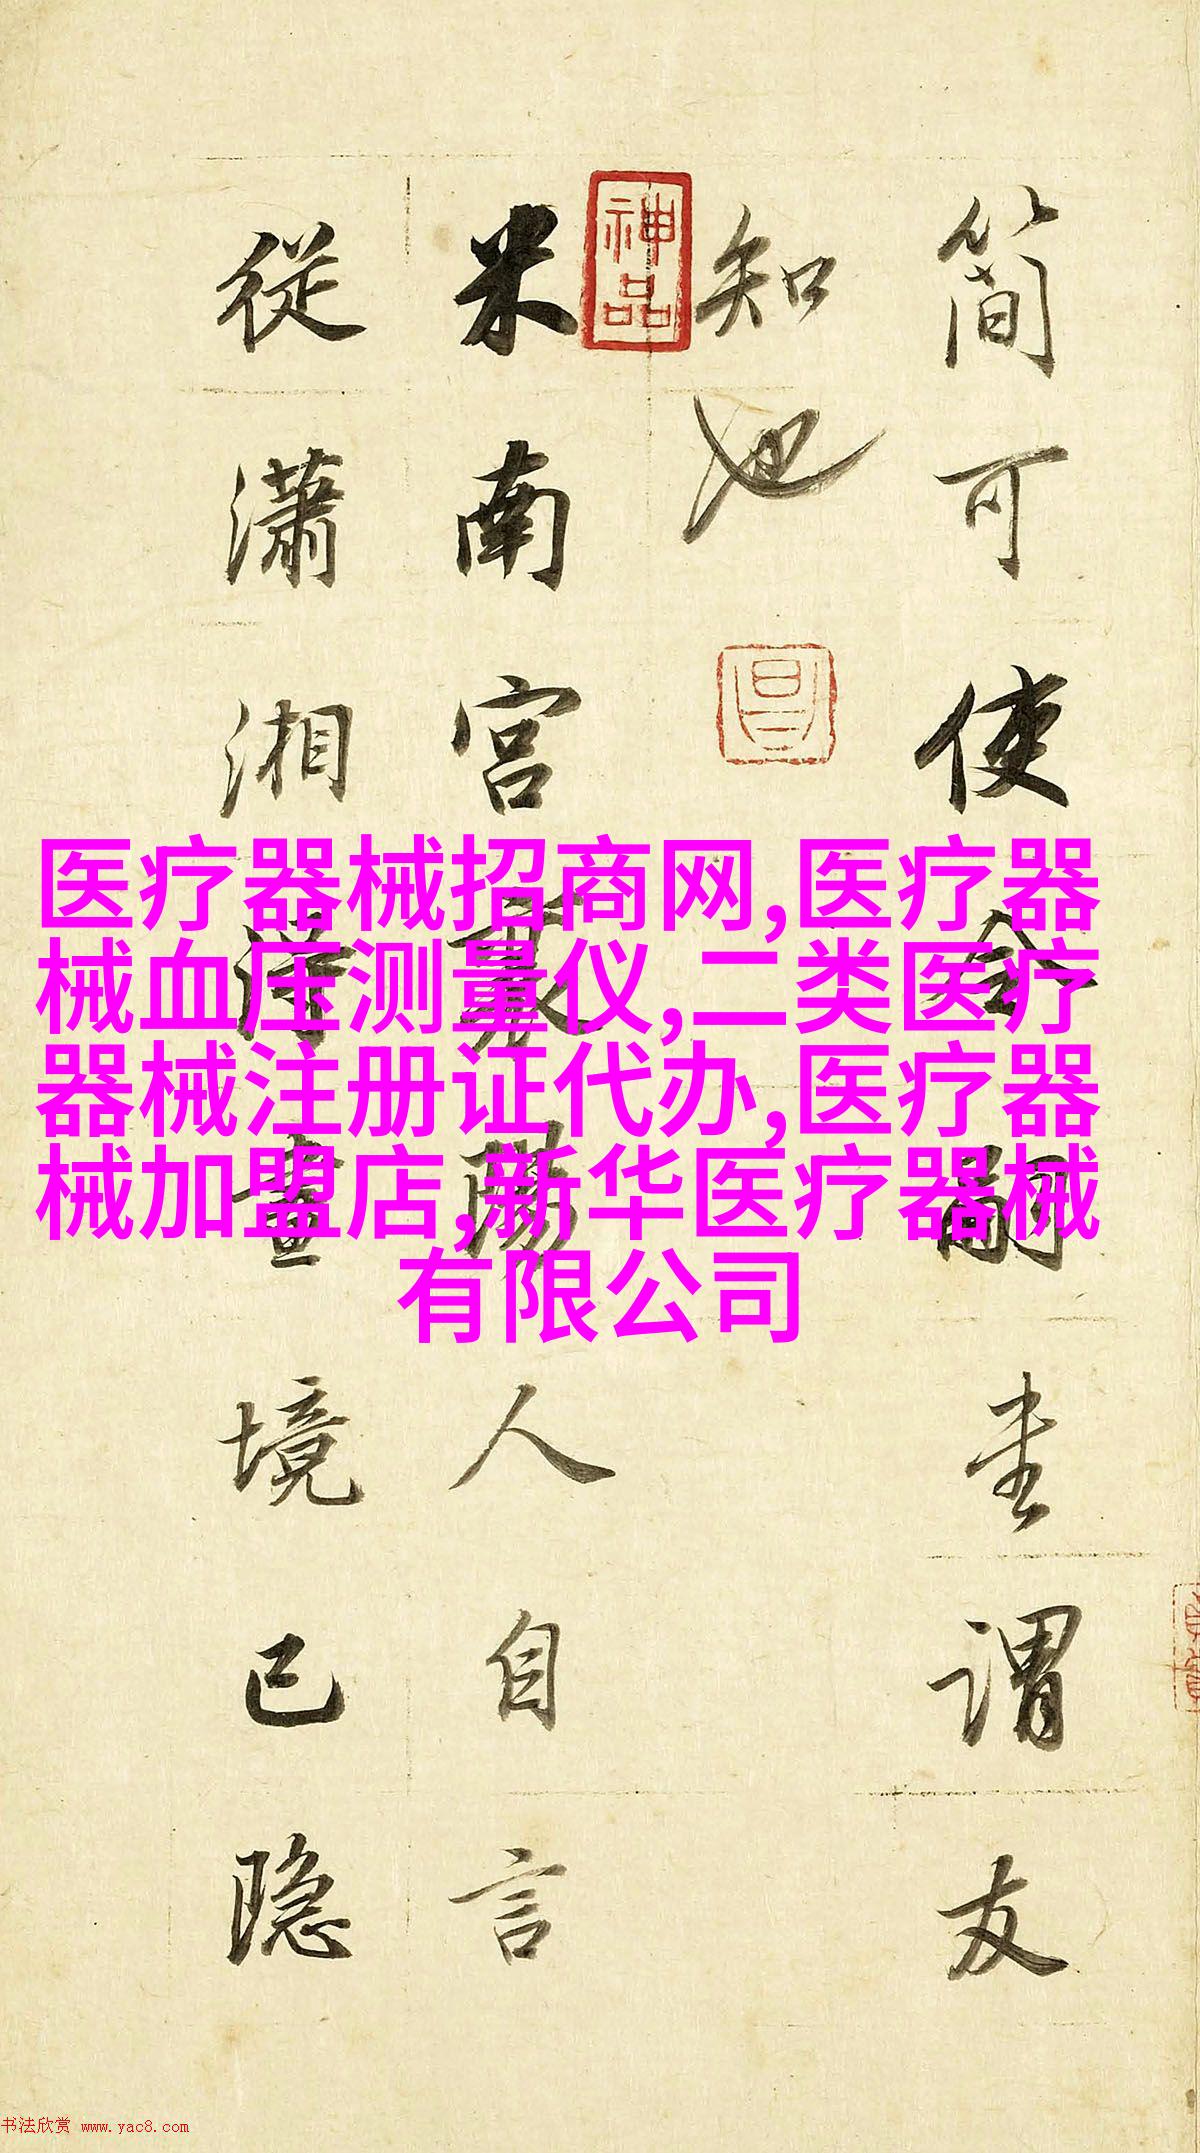 簡可使令嗣謂友
知也
神品
米南宮襄陽人自言
從瀟湘得畫境已隐
医疗器械招商网,医疗器
械血压测量仪,二类医疗
器械注册证代办,医疗器
械加盟店,新华医疗器械
有限公司
书法欣赏 www.yac8.com